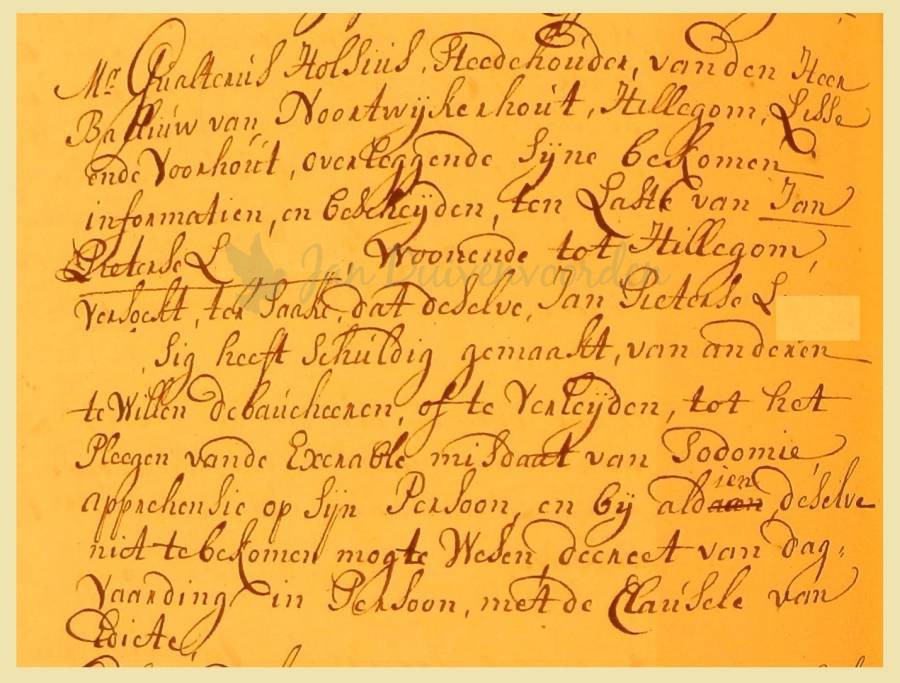 Mr. Gualterus Holsius, Steedehouder, van den Heer
Balliuw van Noortwijkerhout, Hillegom, Lisse
ende Voorhout, overleggende sijne bekomen
informatien, en bescheijden, ten Laste van Jan
Pieterse L, Woonende tot Hillegom,
Jan Duivenvoorden
versoekt, ter saake, dat deselve, Jan Pieterse L
sig heeft schuldig gemaakt, van anderen
te Willen debaucheeren, of te Verleijden, tot het
Pleegen vande Execrable misdaat van Sodomie,
ien
apprehensie op sijn Persoon, en bij aldaen deselve
niet te bekomen mogte Wesen, decreet van dag„
Vaarding in Persoon, met de Clausele van
Edicte,